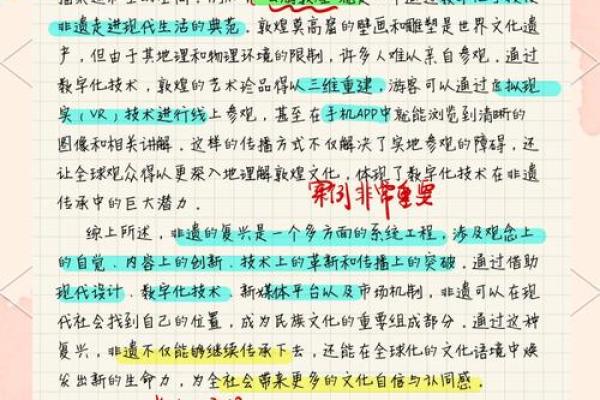 非遗走进现代生活的典范。敦煌莫高窟的壁画和雕塑是世界文化遗
产，但由于其地理和物理环境的限制，许多人难以亲自参观。通过
数字化技术，敦煌的艺术珍品得以三维重建，游客可以通过虚拟现
实（VR）技术进行线上参观，甚至在手机APP中就能浏览到清晰的
图像和相关讲解。这样的传播方式不仅解决了实地参观的障碍，还
让全球观众得以更深入地理解敦煌文化，体现了数字化技术在非遗
传承中的巨大潜力。
案例非常重要
综上所述，非遗的复兴是一个多方面的系统工程，涉及观念上
的自觉、内容上的创新、技术上的革新和传播上的突破。通过借助
现代设计、数字化技术、新媒体平台以及市场机制，非遗可以在现
代社会找到自己的位置，成为民族文化的重要组成部分。通过这种
复兴，非遗不仅能够继续传承下去，还能在全球化的文化语境中焕
发出新的生命力，为全社会带来更多的文化自信与认同感。